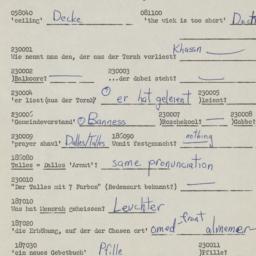 058040 081100
'ceiling' Decke 'the wick is too short'
230001 Khasn
Wie nennt man den, der aus der Torah vorliest?
230002 230003
Balkoore? ...der dabei steht?
230004 230005
'er liest (aus der Torah)' er hat geleient Leient?
230006 230007 230008
'Gemeindevorstand' Banness Boschekool? Gabbe?
230009 186090 nothing
'prayer shawl' Dalles/Talles Womit festgemacht?
186080
Dalles = Dalles 'Armut'? same pronunciation
230010
"Der Talles mit 7 Farben" (Redensart bekannt?)
187010
Was hat Menorah geheissen? Leuchter
187020 front
'die Erhöhung, auf der der Chasen ort' omed almemer
187030 230011
'ein neues Gebetbuch' Pfille Pfille?